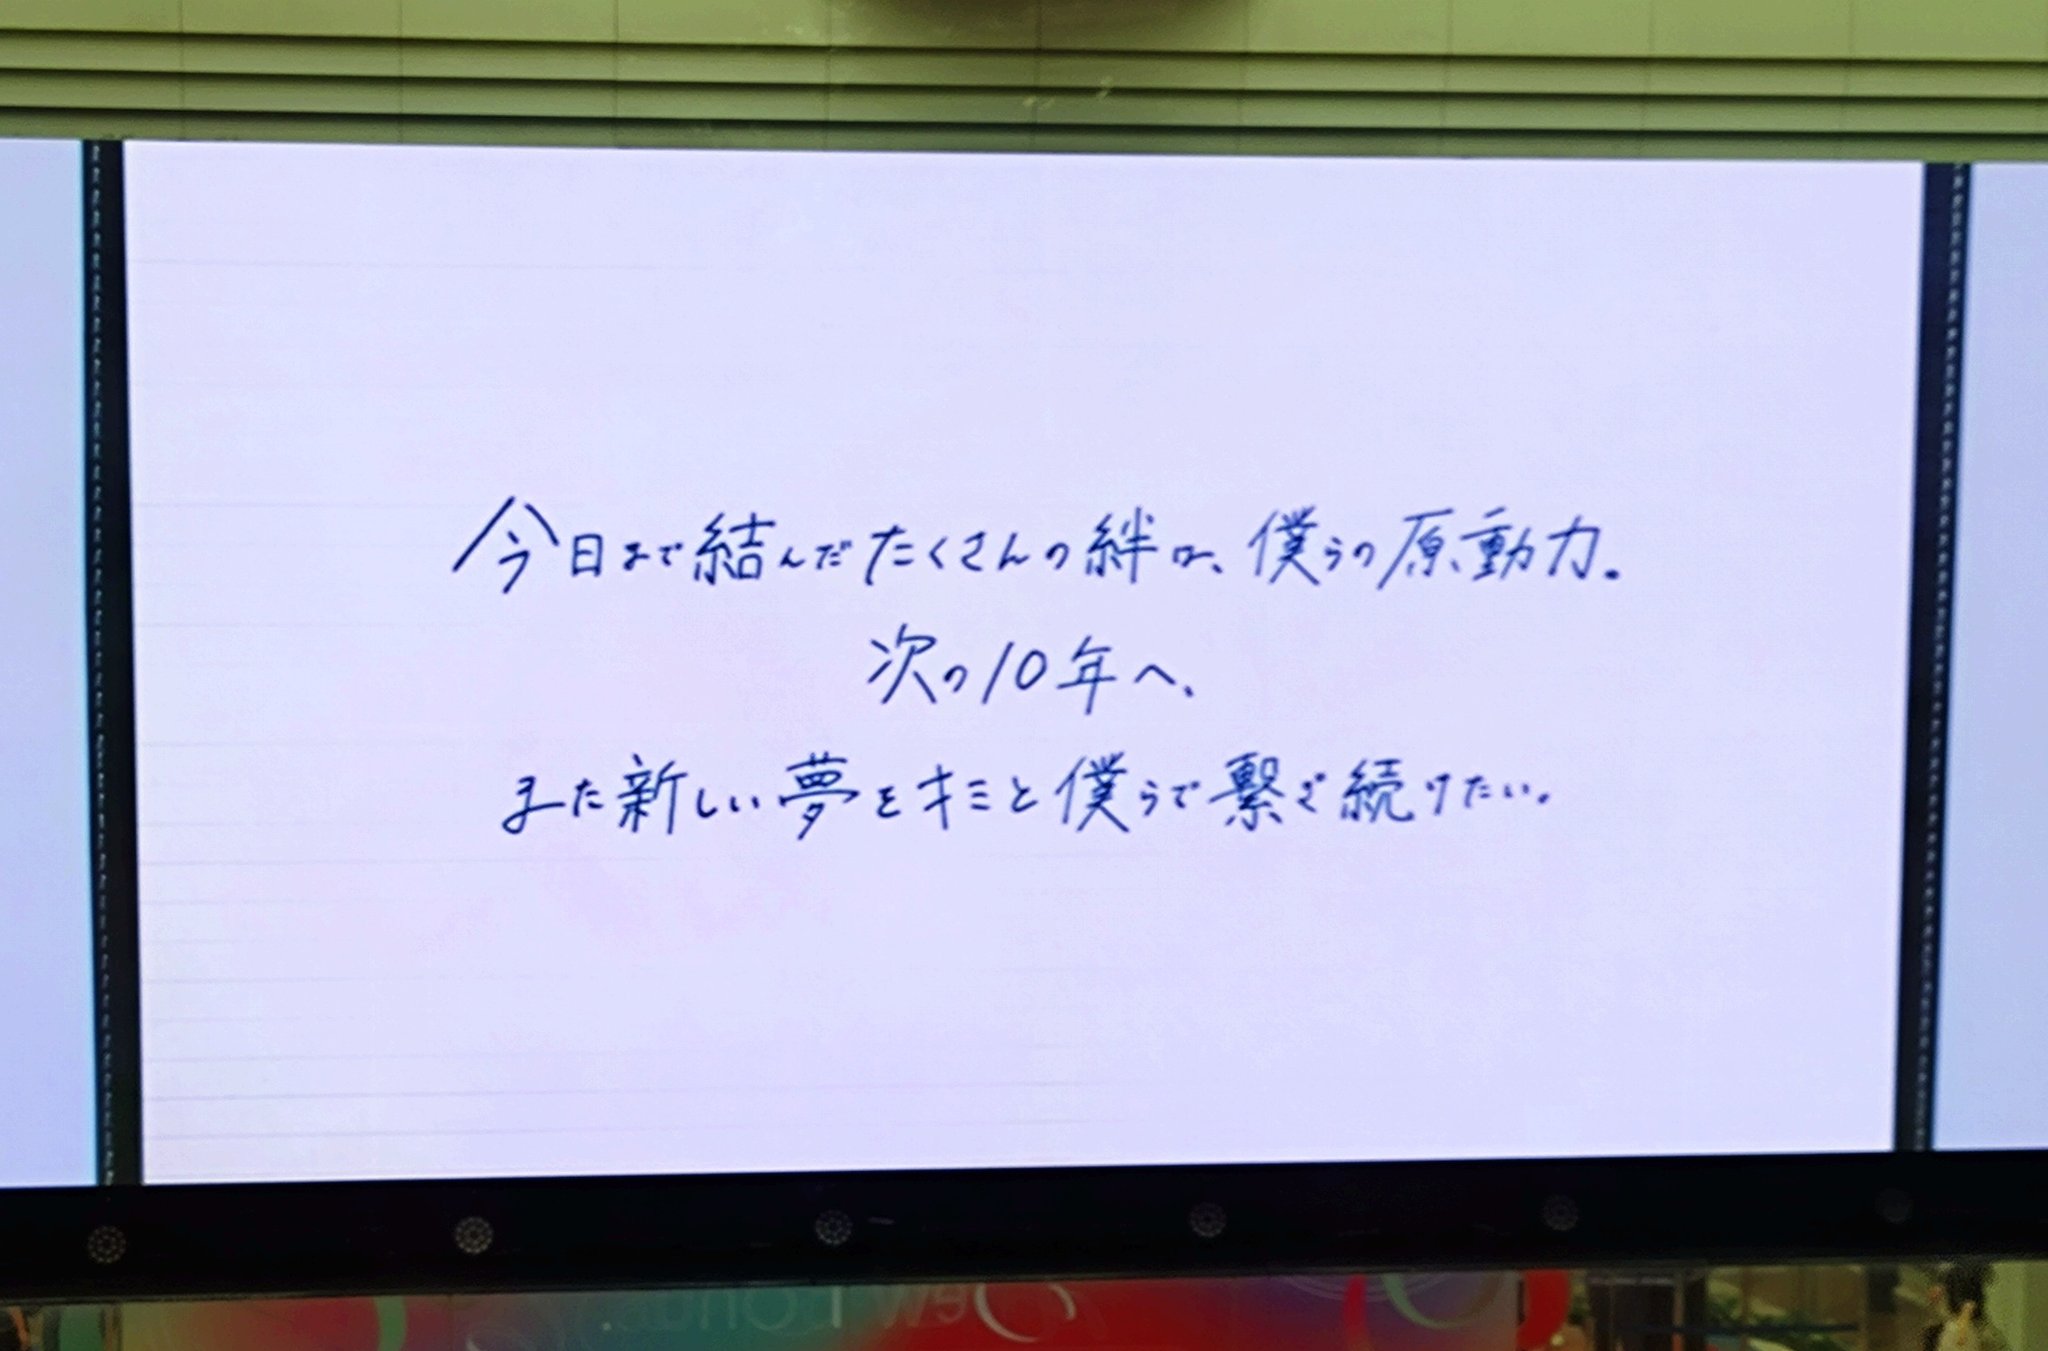 今日まで結んだたくさんの絆は、僕らの原動力。
次の10年へ、
また新しい夢をキミと僕らで繋ぎ続けたい。